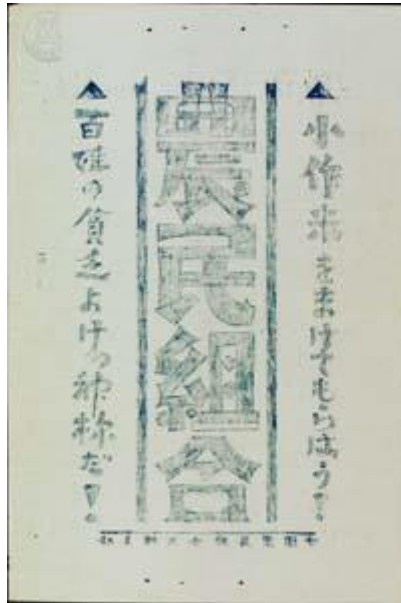 ▲小作米をまけてもらほう!
農民組合
▲百姓の貧乏よけの神様だ!